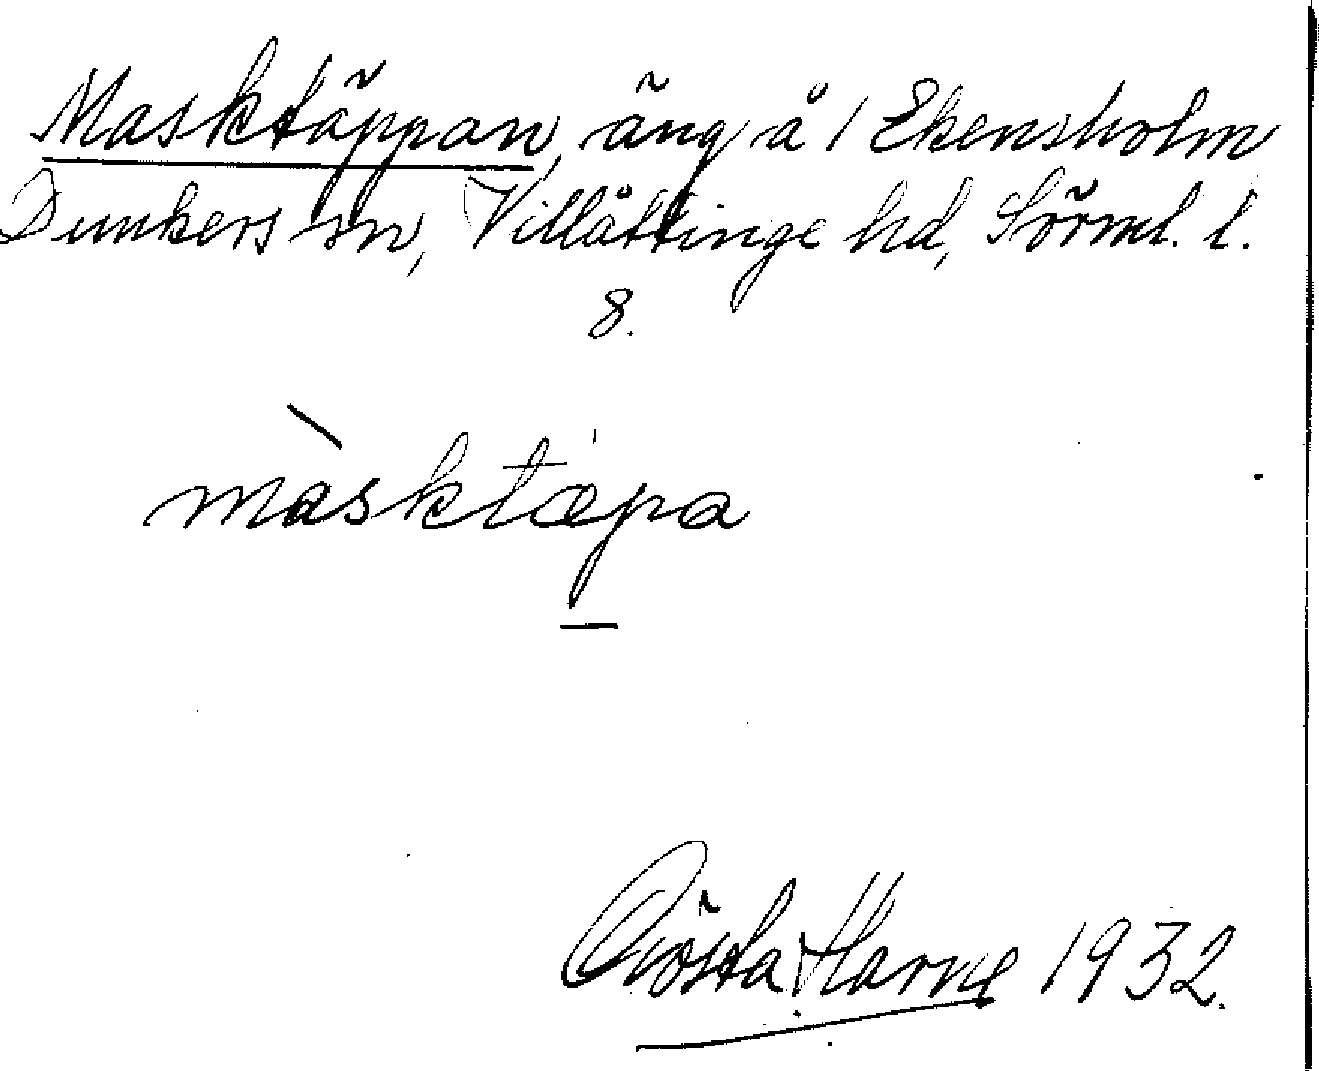 Masktäppan, äng å 1 Ekensholm
Dunkers sn, Villåttinge hd, Sörml. l.
8.
màsktæpa
Gösta Harne 1932.